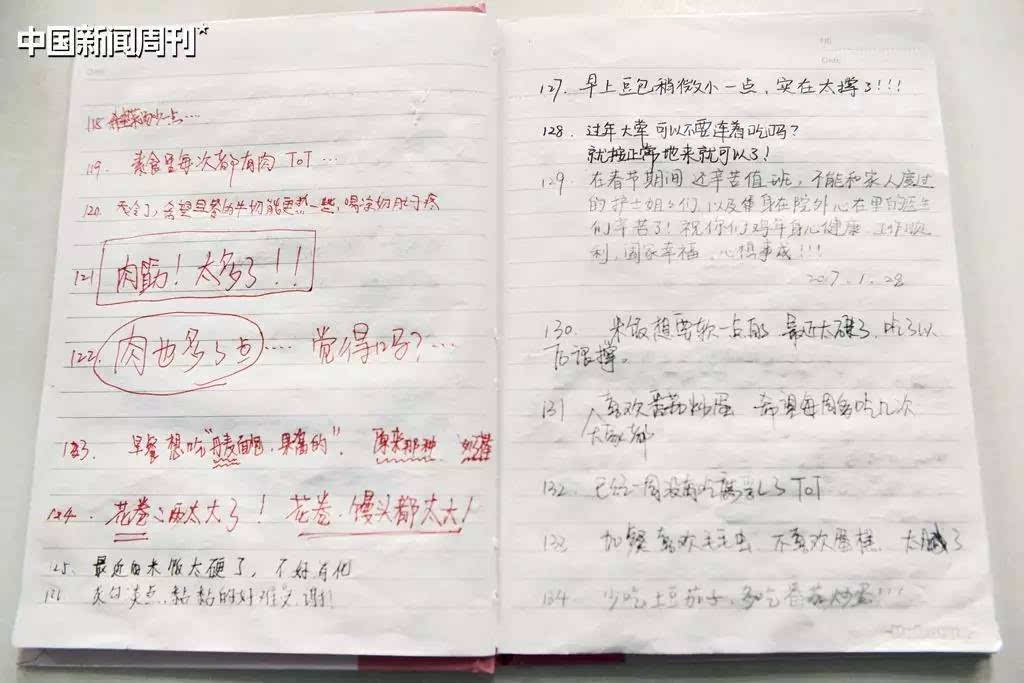 中国新闻周刊
118 希望菜少一点…
119. 素食里每次都有肉 ToT …
120. 天冷了,希望早餐的牛奶能更热一些,喝完奶肚子疼
121. 肉筋!太多了!!
122. 肉也多了点…. 觉得吗?…
123. 早餐想吃“丹麦面包,果酱的”. 原来那种
124. 花卷、太大了! 花卷.馒头都太大!
125. 最近的米饭太硬了,不好消化
127. 早上豆包稍微小一点,实在太撑了!!!
128. 过年大荤可以不要连着吃吗?
就按正常地来就可以了!
129 在春节期间还辛苦值班,不能和家人度过
的护士姐姐们,以及身在院外心在里的医生
们辛苦了!祝你们鸡年身心健康.工作顺
利,阖家幸福,心想事成!!!
2017.1.28
130. 米饭想要软一点的 最近太硬了,吃了以
后很撑。
131 喜欢番茄炒蛋 希望每周多吃几次
大家都
132. 已经一周没有吃腐乳了 ToT
133 加餐喜欢毛毛虫,不喜欢蛋糕,太腻了
134 少吃土豆茄子,多吃番茄炒蛋!!!